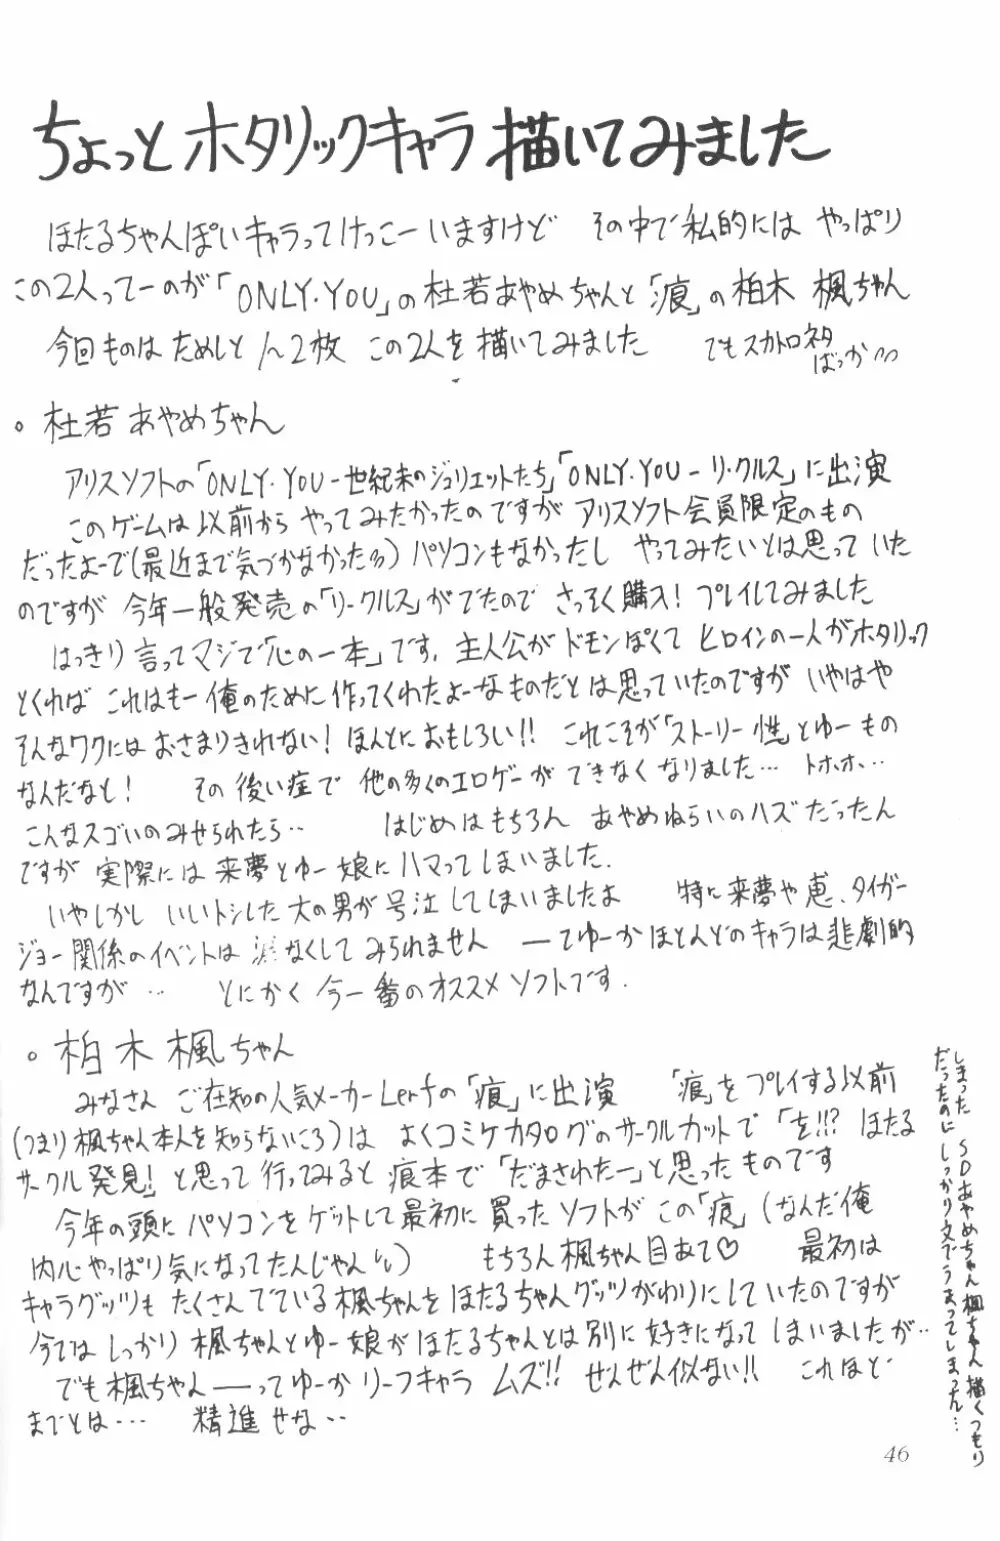 ちょっとホタリックキャラ描いてみました
ほたるちゃんぽいキャラってけっこーいますけど その中で私的には やっぱり
この2人ってーのが「ONLY.YOU」の杜若あやめちゃんと「痕」の柏木 楓ちゃん
今回ものは ためしと 1〜2枚 この2人を描いてみました でもスカトロネタ
ばっか
。杜若あやめちゃん
アリスソフトの「ONLY.YOU-世紀末のジュリエットたち」「ONLY.YOU-リ・クルス」に出演
このゲームは以前から やってみたかったのですが アリスソフト会員限定のもの
だったよーで(最近まで気づかなかった) パソコンもなかったし やってみたいとは思っていた
のですが 今年一般発売の「リ・クルス」がでたので さっそく購入! プレイしてみました
はっきり言ってマジで「心の一本」です. 主人公がドモンぽくて ヒロインの一人がホタリック
とくれば これはもー俺のために作ってくれたよーなものだとは思っていたのですが いやはや
そんなワクにはおさまりきれない! ほんとにおもしろい!! これこそが「ストーリー性」とゆーもの
なんだなと! その後い症で 他の多くのエロゲーができなくなりました… トホホ…
こんなスゴいのみせられたら‥ はじめはもちろん あやめねらいのハズだったん
ですが 実際には来夢とゆー娘にハマってしまいました.
いやしかし いいトシした大の男が号泣してしまいましたよ 特に来夢や恵、タイガー
ジョー関係のイベントは なくしてみられません ーてゆーかほとんどのキャラは悲劇的
なんですが … とにかく 今一番のオススメソフトです.
。柏木楓ちゃん
みなさん ご在知の人気メーカーLerfの「痕」に出演 「痕」をプレイする以前
(つまり楓ちゃん本人を知らないころ)は よくコミケカタログのサークルカットで「を!!? ほたる
サークル発見!」と思って行ってみると痕本で「だまされたー」と思ったものです
今年の頭にパソコンをゲットして最初に買ったソフトがこの「痕」(なんだ俺
内心やっぱり気になってたんじゃん) もちろん楓ちゃん目あて♡ 最初は
キャラグッツもたくさんでている楓ちゃんをほたるちゃんグッツがわりにしていたのですが
今では しっかり楓ちゃんとゆー娘がほたるちゃんとは別に好きになってしまいましたが‥
でも楓ちゃんーーってゆーかリーフキャラ ムズ!! ぜんぜん似ない!! これほど
までとは… 精進せな‥
しまった SDあやめちゃん楓ちゃん描くつもり
だったのにしっかり文でうまってしまった…
46